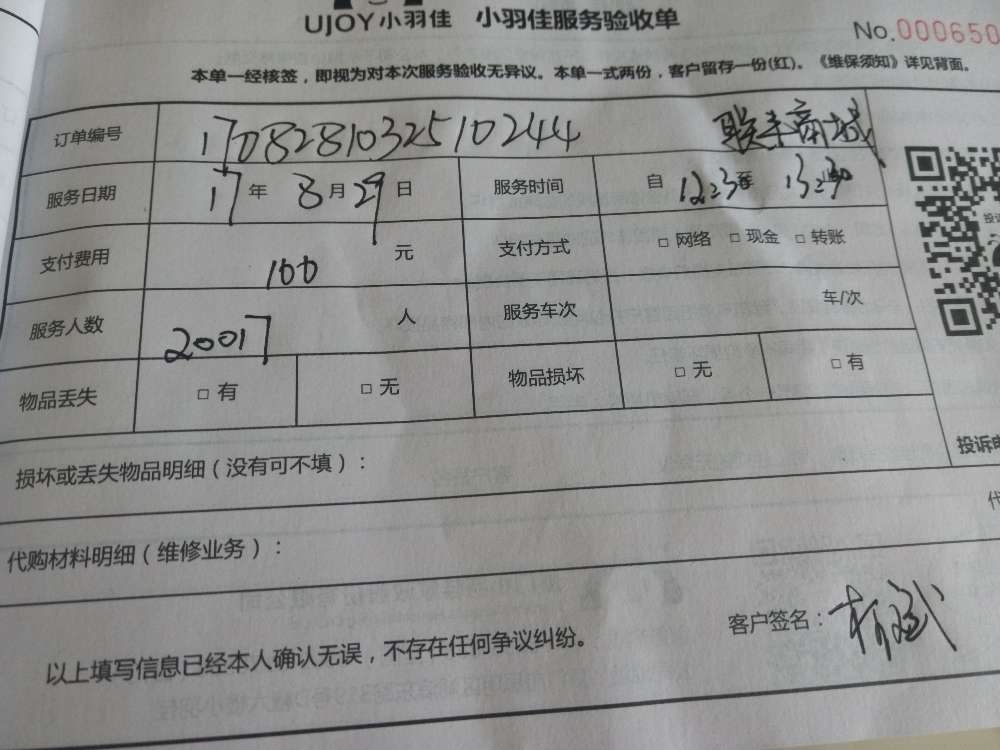 UJOY小羽佳 小羽佳服务验收单
No.000650
本单一经核签，即视为对本次服务验收无异议。本单一式两份，客户留存一份(红)。《维保须知》详见背面。
订单编号 170828103251 0244 联丰商城
服务日期 17年 8月29日 服务时间 自 12:30至 13:30
支付费用 100 元 支付方式 □ 网络 □ 现金 □ 转账
服务人数 20017 人 服务车次 车/次
物品丢失 □ 有 □ 无 物品损坏 □ 无 □ 有
投诉
损坏或丢失物品明细（没有可不填）：
代购材料明细（维修业务）：
代
客户签名：
以上填写信息已经本人确认无误，不存在任何争议纠纷。